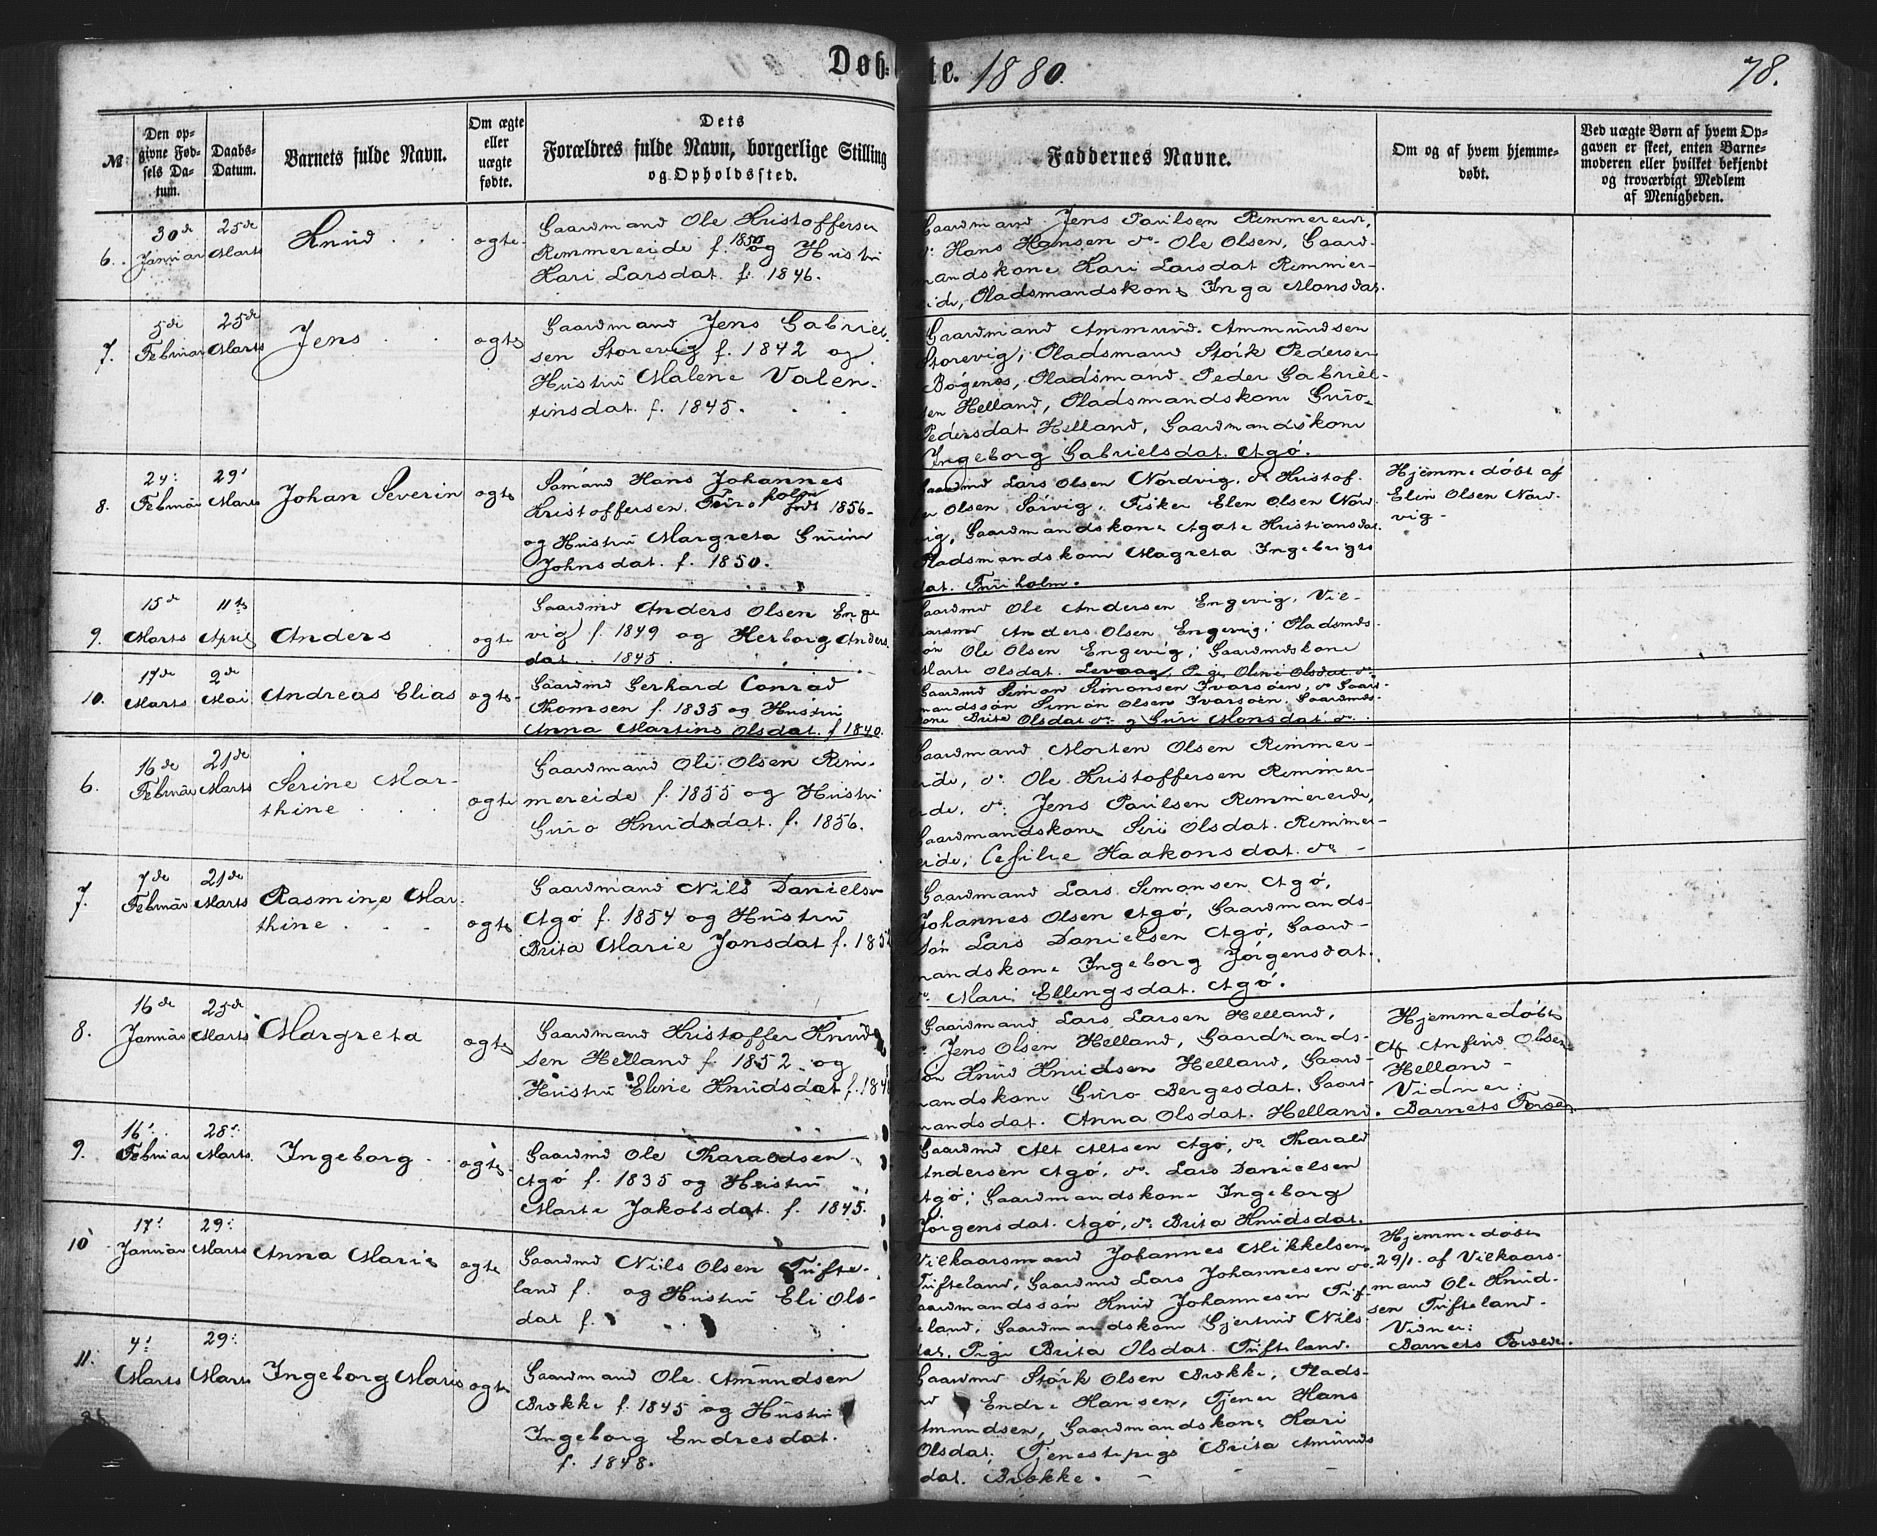 Døb- te. 1880. 78.
№
Den op-
givne Fød-
sels Da-
tum.
Daabs-
Datum.
Barnets fulde Navn.
Om ægte
eller
uægte
fødte.
Dets
Forældres fulde Navn, borgerlige Stilling
og Opholdssted.
Faddernes Navne.
Om og af hvem hjemme-
døbt.
Ved uægte Børn af hvem Op-
gaven er skeet, enten Barne-
moderen eller hvilket bekjendt
og troværdigt Medlem
af Menigheden.
6.
30de
Januar
25de
Marts
Knud
ægte
Gaardmand Ole Kristoffersen
Remmereide f. 1855 og Hustru
Kari Larsdat. f. 1846.
Gaardmand Jens Paulsen Remmereide,
do Hans Hansen do Ole Olsen, Gaard-
mandskone Kari Larsdat Remmer-
eide, Pladsmandskone Inga Monsdat.
7.
5de
Februar
25de
Marts
Jens
ægte
Gaardmand Jens Gabriel-
sen Storevig f. 1842 og
Hustru Malene Valen-
tinsdat. f. 1845.
Gaardmand Ammund Ammundsen
Storevig; Pladsmand Störk Pedersen
Bögenes, Pladsmand Peder Gabriel-
sen Helland, Pladsmandskone Guro
Pedersdat Helland, Gaardmandskone
Ingeborg Gabrielsdat. Agö.
8.
24:
Februar
29'
Marts
Johan Severin
ægte
Sömand Hans Johannes
Kristoffersen, Furuholm födt 1856
og Hustru Margreta Gurine
Johnsdat. f. 1850.
Gaardmd Lars Olsen Nordvig, do Kristof-
fer Olsen Sörvig, Fisker Elen Olsen Nord-
vig, Gaardmandskone Agate Kristiansdat.
Pladsmandskone Magreta Ingebrigts
dat. Furuholm.
Hjemmedöbt af
Elin Olsen Nord-
vig
9.
15de
Marts
11te
April
Anders
ægte
Gaardmd Anders Olsen Enge
vig f. 1849 og Herborg Anders
dat. 1845.
Gaardmd Ole Andersen Engevig, Vil-
kaarsmd Anders Olsen Engevig; Pladsmds-
sön Ole Olsen Engevig; Gaardmdskone
Marte Olsdat. Levaag, Pige Oline Olsdat do
10.
17de
Marts
2de
Mai
Andreas Elias
ægte
Gaardmd Gerhard Conrad
Thomsen f. 1835 og Hustru
Anna Martine Olsdat. f 1840.
Gaardmd Simon Simonsen Ivarsöen, do Gaard-
mandssön Simon Olsen Ivarsöen. Gaardmds-
kone Brite Olsdat do og Guri Monsdat do
6.
16de
Februar
21de
Marts
Serine Mar-
thine
ægte
Gaardmand Ole Olsen Rem-
mereide f. 1855 og Hustru
Guro Knudsdat. f. 1856.
Gaardmand Morten Olsen Remmer-
eide, do Ole Kristoffersen Remmer-
eide, do: Jens Paulsen Remmereide,
Gaardmandskone Siri Olsdat. Remmer-
eide; Cesilie Haakonsdat. do
7.
7de
Februar
21de
Marts
Rasmine Mar-
thine
ægte
Gaardmand Nils Danielsen
Agö f. 1854 og Hustru
Brita Marie Jonsdat f. 185
Gaardmand Lars Simonsen Agö,
Johannes Olsen Agö, Gaardmands-
sön Lars Danielsen Agö, Gaard-
mandskone Ingeborg Jörgensdat.
do Mari Ellingsdat. Agö.
8.
16de
Januar
25de
Marts
Margreta
ægte
Gaardmand Kristoffer Knud
sen Helland f. 1852 og
Hustru Eline Knudsdat f. 184
Gaardmand Lars Larsen Helland,
do Jens Olsen Helland, Gaardmands-
sön Knud Knudsen Helland, Gaard-
mandskone Guro Börgesdat. Gaard-
mandsdat. Anna Olsdat. Helland.
Hjemmedöbt
af Anfind Olsen
Helland
Vidner:
Barnets Forældre
9.
16'
Februar
28:
Marts
Ingeborg
ægte
Gaardmd Ole Tharaldsen
Agö f. 1835 og Hustru
Marte Jakobsdat. f. 1845.
Gaardmd Alt Altsen Agö, do Tharald
Andersen Agö, do. Lars Danielsen
Agö; Gaardmandskone Ingeborg
Jörgensdat. Agö, do Brita Knudsdat.
10
17'
Januar
29:
Marts
Anna Marie
ægte
Gaardmd Nils Olsen Tufte-
land f. og Hustru Eli Ols-
dat f.
Vilkaarsmand Johannes Mikkelsen
Tufteland, Gaardmd Lars Johannesen do
Gaardmandssön Knud Johannesen Tuf-
teland, Gaardmandskone Gjertrud Nils-
dat, Pige Brita Olsdat. Tufteland.
Hjemmedöbt
29/1. af Vilkaars-
mand Ole Knud-
sen Tufteland.
Vidner:
Barnets Forældre.
11.
4'
Marts
29:
Marts
Ingeborg Marie
ægte
Gaardmand Ole Amundsen
Brække f. 1845 og Hustru
Ingeborg Endresdat.
f. 1848.
Gaardmd Störk Olsen Brække, Plads-
md Endre Hansen, Tjener Hans
Amundsen, Gaardmandskone Kari
Olsdat; Tjenestepige Brita Amunds
dat. Brække.